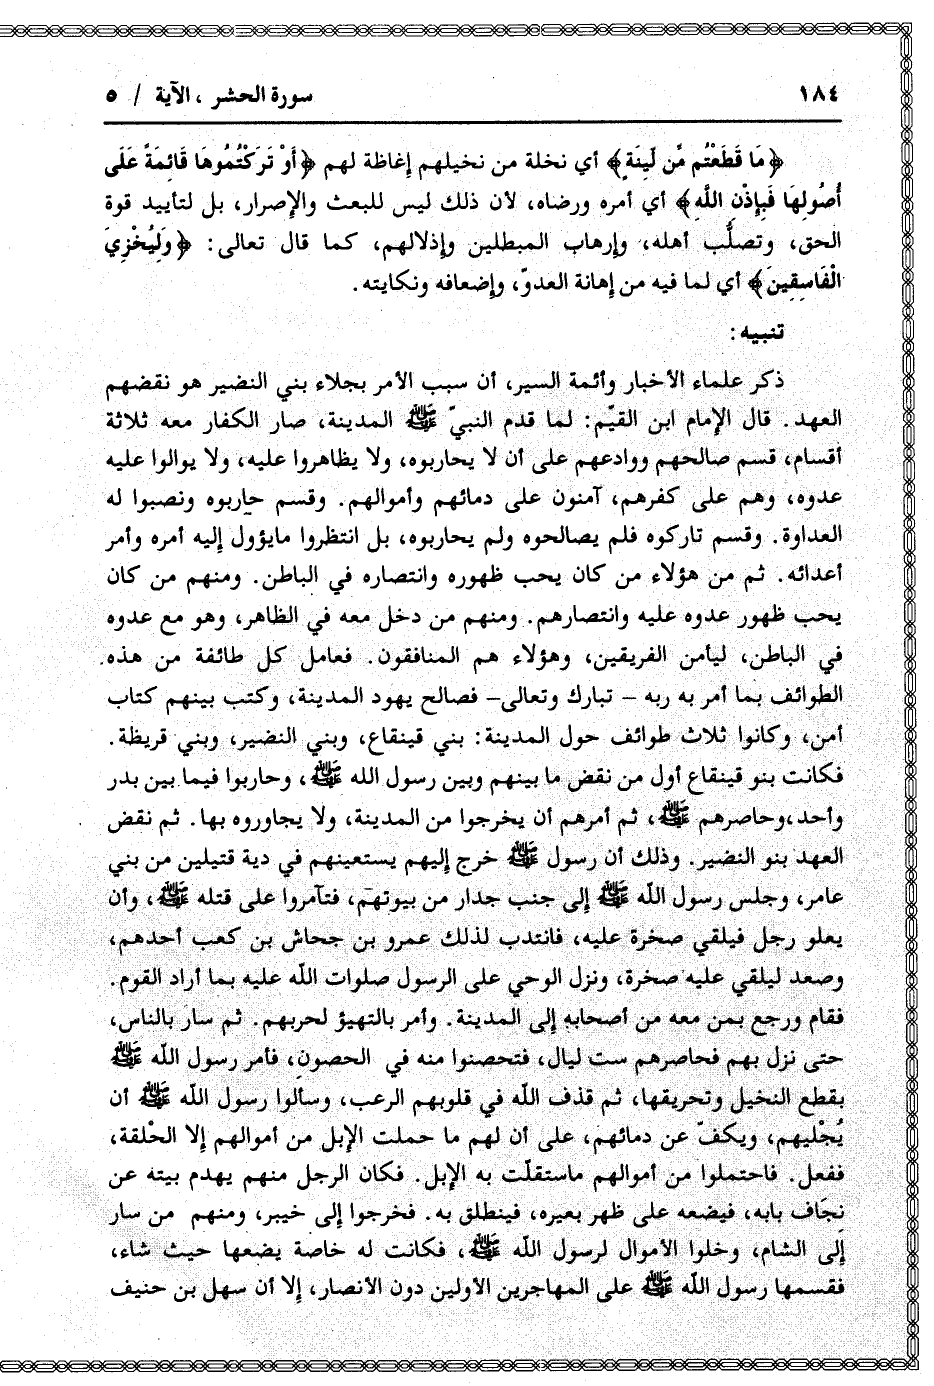 ١٨٤ سورة الحشر ، الآية / ٥
﴿مَا قَطَعْتُم مِّن لِّينَةٍ﴾ أي نخلة من نخيلهم إغاظة لهم ﴿أَوْ تَرَكْتُمُوهَا قَائِمَةً عَلَى
أُصُولِهَا فَبِإِذْنِ اللَّهِ﴾ أي أمره ورضاه، لأن ذلك ليس للبعث والإصرار، بل لتأييد قوة
الحق، وتصلُّب أهله، وإرهاب المبطلين وإذلالهم، كما قال تعالى: ﴿وَلِيُخْزِيَ
الْفَاسِقِينَ﴾ أي لما فيه من إهانة العدوّ، وإضعافه ونكايته.
تنبيه:
ذكر علماء الأخبار وأئمة السير، أن سبب الأمر بجلاء بني النضير هو نقضهم
العهد. قال الإمام ابن القيّم: لما قدم النبيّ ﷺ المدينة، صار الكفار معه ثلاثة
أقسام، قسم صالحهم ووادعهم على أن لا يحاربوه، ولا يظاهروا عليه، ولا يوالوا عليه
عدوه، وهم على كفرهم، آمنون على دمائهم وأموالهم. وقسم حاربوه ونصبوا له
العداوة. وقسم تاركوه فلم يصالحوه ولم يحاربوه، بل انتظروا مايؤول إليه أمره وأمر
أعدائه. ثم من هؤلاء من كان يحب ظهوره وانتصاره في الباطن. ومنهم من كان
يحب ظهور عدوه عليه وانتصارهم. ومنهم من دخل معه في الظاهر، وهو مع عدوه
في الباطن، ليأمن الفريقين، وهؤلاء هم المنافقون. فعامل كل طائفة من هذه
الطوائف بما أمر به ربه – تبارك وتعالى– فصالح يهود المدينة، وكتب بينهم كتاب
أمن، وكانوا ثلاث طوائف حول المدينة: بني قينقاع، وبني النضير، وبني قريظة.
فكانت بنو قينقاع أول من نقض ما بينهم وبين رسول الله ﷺ، وحاربوا فيما بين بدر
وأحد،وحاصرهم ﷺ، ثم أمرهم أن يخرجوا من المدينة، ولا يجاوروه بها. ثم نقض
العهد بنو النضير. وذلك أن رسول ﷺ خرج إليهم يستعينهم في دية قتيلين من بني
عامر، وجلس رسول الله ﷺ إلى جنب جدار من بيوتهم، فتآمروا على قتله ﷺ، وأن
يعلو رجل فيلقي صخرة عليه، فانتدب لذلك عمرو بن جحاش بن كعب أحدهم،
وصعد ليلقي عليه صخرة، ونزل الوحي على الرسول صلوات اللّه عليه بما أراد القوم.
فقام ورجع بمن معه من أصحابه إلى المدينة. وأمر بالتهيؤ لحربهم. ثم سار بالناس،
حتى نزل بهم فحاصرهم ست ليال، فتحصنوا منه في الحصون، فأمر رسول اللّه ﷺ
بقطع النخيل وتحريقها، ثم قذف اللّه في قلوبهم الرعب، وسألوا رسول اللّه ﷺ أن
يُجْليهم، ويكفّ عن دمائهم، على أن لهم ما حملت الإبل من أموالهم إلا الحْلقة،
ففعل. فاحتملوا من أموالهم مااستقلّت به الإبل. فكان الرجل منهم يهدم بيته عن
نِجَاف بابه، فيضعه على ظهر بعيره، فينطلق به. فخرجوا إلى خيبر، ومنهم من سار
إلى الشام، وخلوا الأموال لرسول اللّه ﷺ، فكانت له خاصة يضعها حيث شاء،
فقسمها رسول اللّه ﷺ على المهاجرين الأولين دون الأنصار، إلا أن سهل بن حنيف